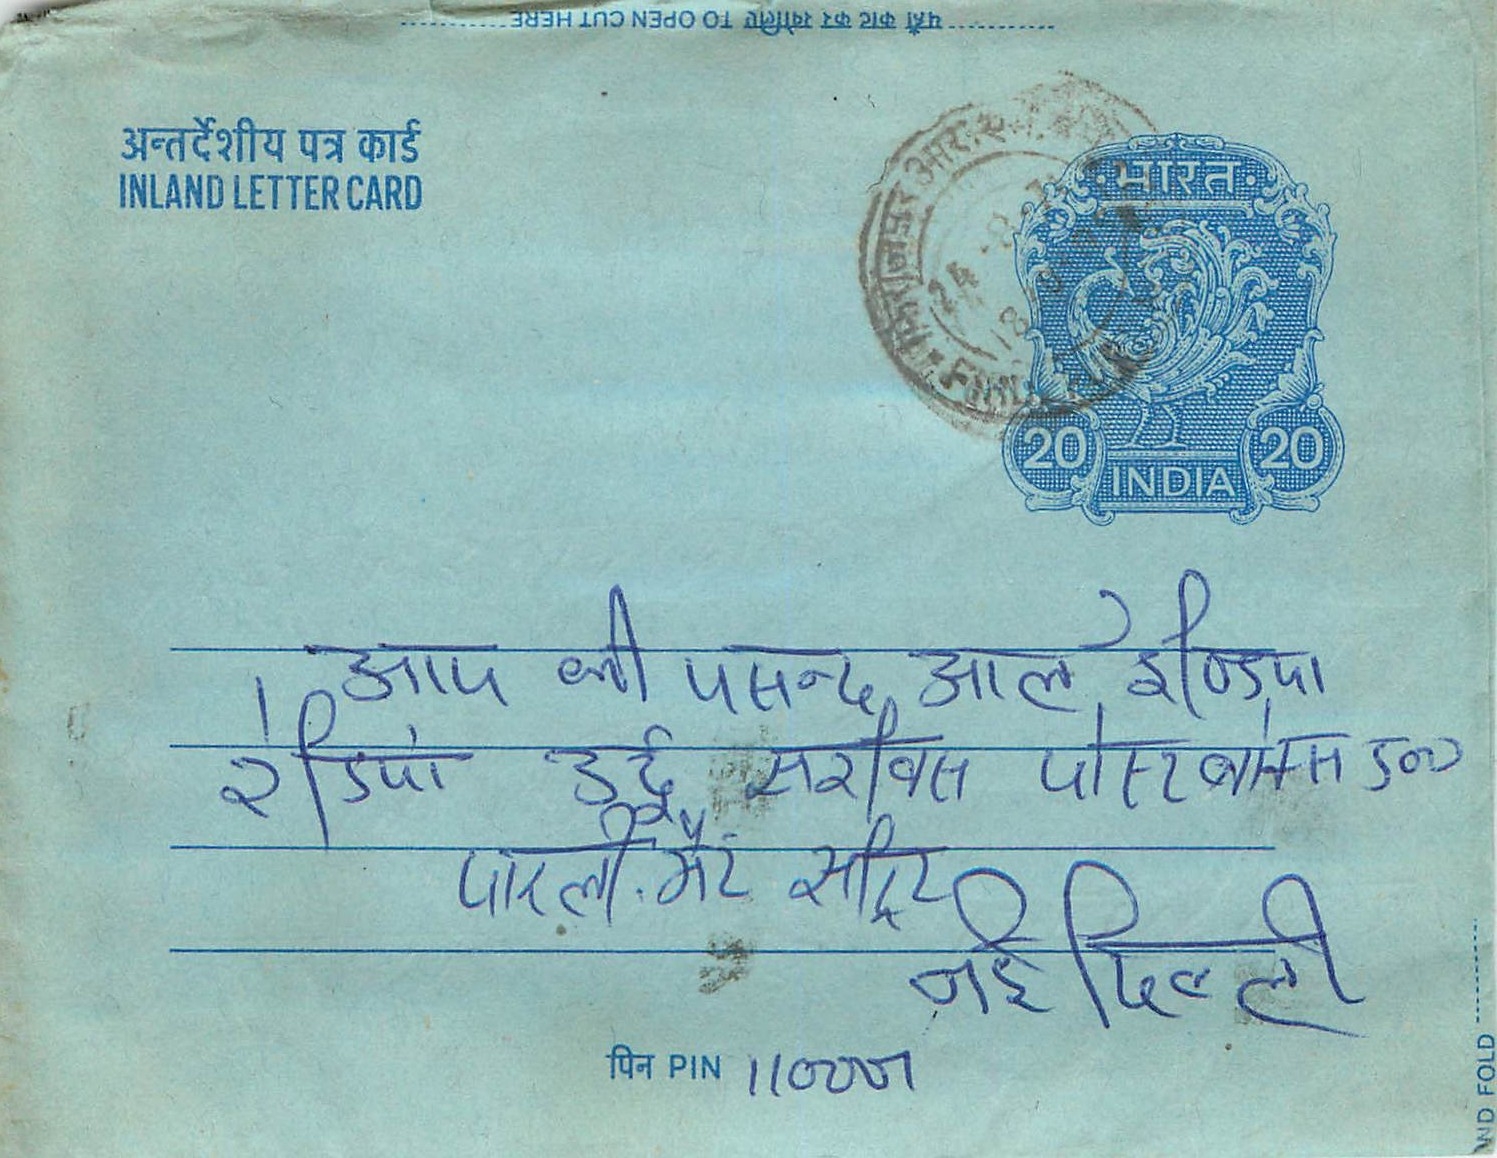 यहाँ काट कर खोलिए TO OPEN CUT HERE
अन्तर्देशीय पत्र कार्ड
INLAND LETTER CARD
भारत
20 20
INDIA
24
आप की पसन्द आल इण्डिया
रेडियो उर्दू सर्विस पोस्ट बाक्स 500
पारलीमेंट स्ट्रिट
नई दिल्ली
पिन PIN 110001
ND FOLD